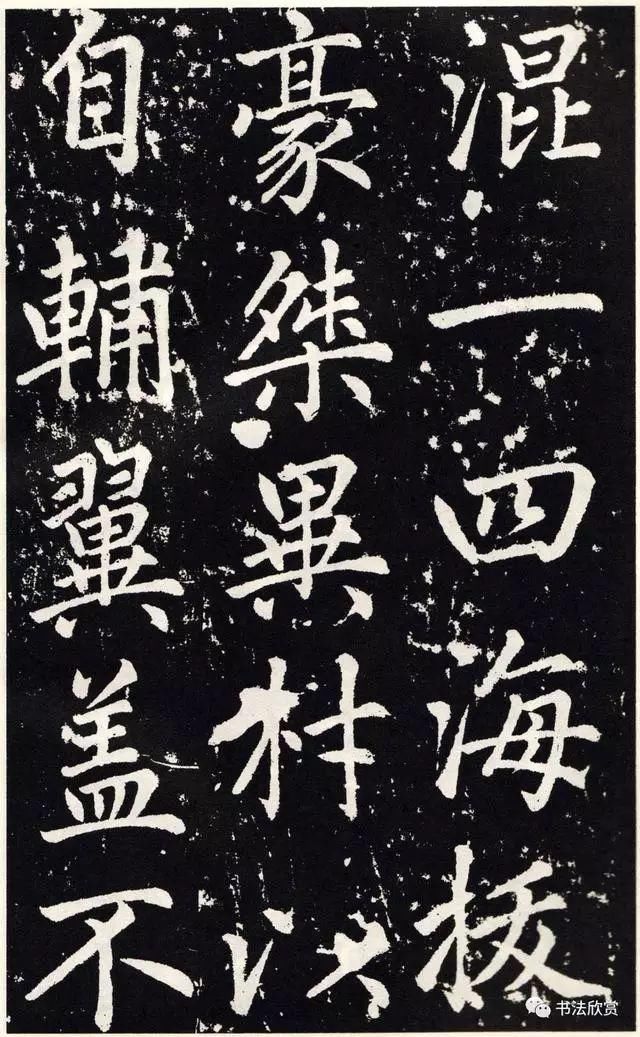 混一四海拔
豪桀異材以
自輔翼盖不
书法欣赏